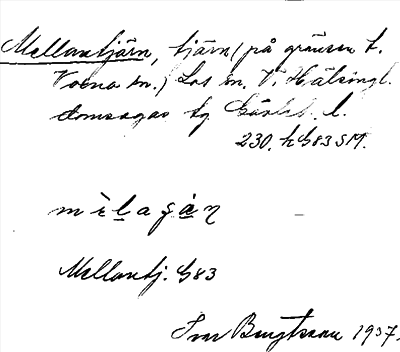 Mellantjärn, tjärn (på gränsen t.
Voxna sn.) Los sn. V. Hälsingl.
domsagas tg Gävleb. l.
230. h G83 SM.
Mellantj. G83
Ivar Bengtsson 1937.